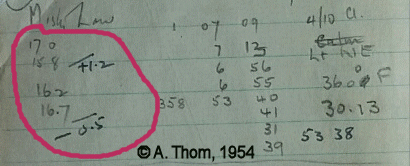 Misty Law 1 07 09 4/10 Cl.
17 0 7 125 Lt NE
15.8 +1.2 6 56
6 55 36.0° F
16.2 358 53 40
16.7 41 30.13
- 0.5 31 53 38
39
© A. Thom, 1954